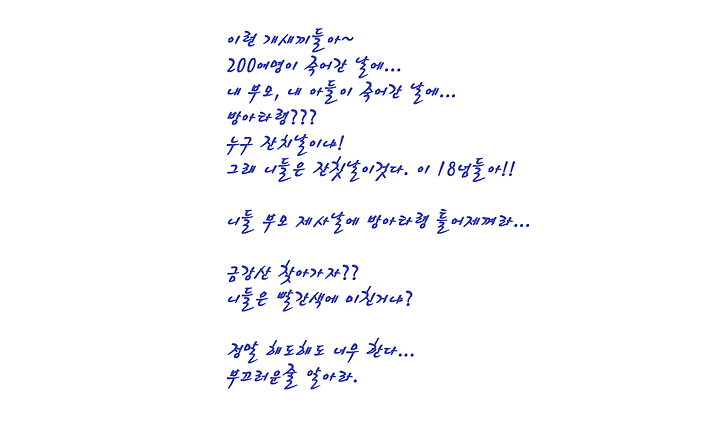 이런 개새끼들아~
200여명이 죽어간 날에...
내 부모, 내 아들이 죽어간 날에...
방아타령???
누구 잔치날이냐!
그래 니들은 잔칫날이겄다. 이 18넘들아!!
니들 부모 제사날에 방아타령 틀어제껴라...
금강산 찾아가자??
니들은 빨간색에 미친거냐?
정말 해도해도 너무 한다...
부끄러운줄 알아라.